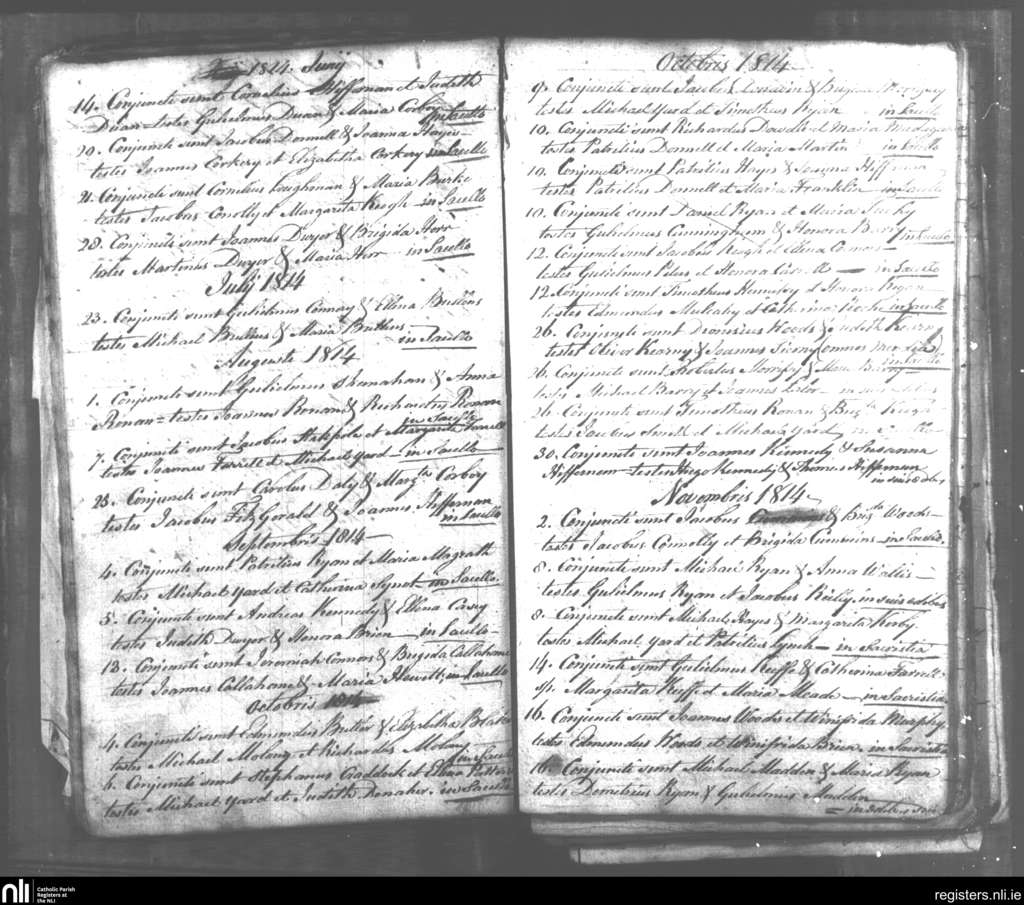 1814. Junij
14. Conjuncti sunt Cornelius Heffernan et Judith
Duan testes Gulielmus Duan & Maria Corboy
in Sacello
20. Conjuncti sunt Jacobus Donnell & Joanna Hayes
testes Joannes Corkery et Elizabetha Corkery in Sacello
21. Conjuncti sunt Cornelius Loughman & Maria Burke
testes Jacobus Conolly et Margarita Keogh in Sacello
28. Conjuncti sunt Joannes Dwyer & Brigida Herr
testes Martinus Dwyer & Maria Herr in Sacello
July 1814
23. Conjuncti sunt Gulielmus Conway & Ellena
testes Michael & Maria
in Sacello
Augusti 1814
1. Conjuncti sunt Gulielmus Shanahan & Anna
Ronan = testes Joannes Ronan & Richardus Ronan
in Sacello
7. Conjuncti sunt Jacobus Stakpole et Margarita Farrell
testes Joannes Farrell et Michael Yard in Sacello
23. Conjuncti sunt Carolus Daly & Margta Corboy
testes Jacobus FitzGerald & Joannes Heffernan
in Sacello
Septembris 1814
4. Conjuncti sunt Patritius Ryan et Maria Magrath
testes Michael Yard et Catherina Synot in Sacello
5. Conjuncti sunt Andreas Kennedy & Ellena Casey
testes Judith Dwyer & Honora Brien in Sacello
13. Conjuncti sunt Jeremiah Connors & Brigida Callahane
testes Joannes Callahane & Maria Hewett, in Sacello
Octobris 1814
4. Conjuncti sunt Edmundus Butler & Elizabetha Blake
testes Michael Molony et Richardus Molony
in Sacello
6. Conjuncti sunt Stephanus Craddock et Ellena
testes Michael Yard et Judith Donaher. in Sacello
Octobris 1814
9. Conjuncti sunt Jacobus & Brigida
testes Michael Yard et Timotheus Ryan in Sacello
10. Conjuncti sunt Richardus Dowdle et Maria
testes Patritius Donnell et Maria Martin in Sacello
10. Conjuncti sunt Patritius Hayes & Joanna Heffernan
testes Patritius Donnell et Maria Franklin in Sacello
10. Conjuncti sunt Daniel Ryan et Maria
testes Gulielmus Cunningham & Honora
in Sacello
12. Conjuncti sunt Jacobus Keogh et Ellena
testes Gulielmus et Honora in Sacello
12. Conjuncti sunt Timotheus Kennedy & Honora Ryan
testes Edmundus Mulcahy et Catherina in Sacello
26. Conjuncti sunt Dionisius Woods & Judith Kearny
testes Oliver Kearny & Joannes omnes
in Sacello
26. Conjuncti sunt Robertus & Maria Barry
testes Michael Barry & Joannes
26. Conjuncti sunt Timotheus Ronan & Brigta
testes Jacobus et Michael Yard
30. Conjuncti sunt Joannes Kennedy & Susanna
Heffernan testes Hugo Kennedy & Thomas Heffernan
in suis edibus
Novembris 1814
2. Conjuncti sunt Jacobus & Brigta Woods
testes Jacobus Connolly et Brigida Cummins in
8. Conjuncti sunt Michael Ryan & Anna Wallis
testes Gulielmus Ryan et Jacobus Reily, in suis edibus
8. Conjuncti sunt Michael Hayes & Margarita Kerby
testes Michael Yard et Patritius Lynch in Sacristia
14. Conjuncti sunt Gulielmus Keiffe & Catherina Farrell
Margarita Keiff et Maria Meade in Sacristia
16. Conjuncti sunt Joannes Woods et Winifrida Murphy
testes Edmundus Woods et Winifrida Brien in Sacristia
16. Conjuncti sunt Michael Madden & Maria Ryan
testes Demetrius Ryan & Gulielmus Madden
nli
Catholic Parish
Registers at
the NLI
registers.nli.ie